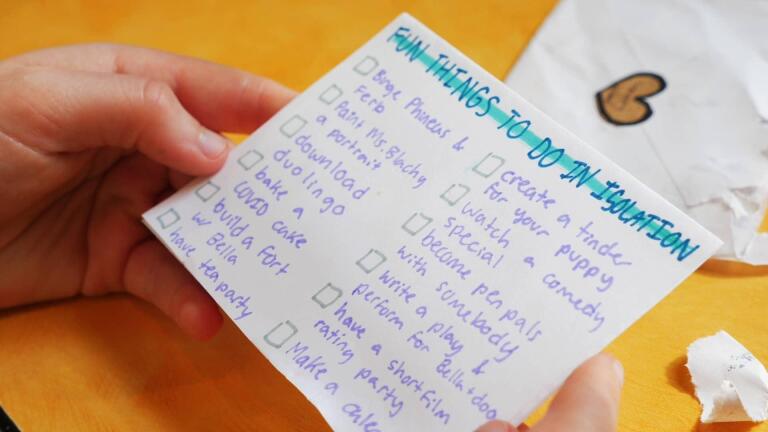 FUN THINGS TO DO IN ISOLATION
Binge Phineus &
Ferb
Paint Ms. Blachy
a portrait
download
duolingo
bake a
COVID cake
build a fort
w/ Bella
have tea party
create a tinder
for your puppy
watch a comedy
special
become pen pals
with somebody
write a play &
perform for Bella +
have a short film
rating party
Make a